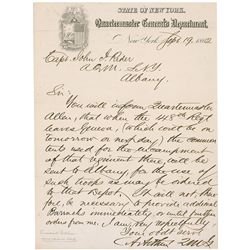 STATE OF NEW YORK,
Quartermaster General's Department,
New York, Sept 19, 1862
Capt John J.
A.Q.M. S.N.Y.
Albany.
Sir:
You will inform Quartermaster
Allen, that when the 148th Regt
leaves Geneva, (which will be on
tomorrow or next day) the
tents used for the encampment
of that regiment there, will be
sent to Albany, for the use of
such troops as may be ordered
to that Depot. It will not there
fore, be necessary to provide additional
Barracks immediately, or until further
orders from me. I am, very respectfully,
Your obdt servt
Arthur